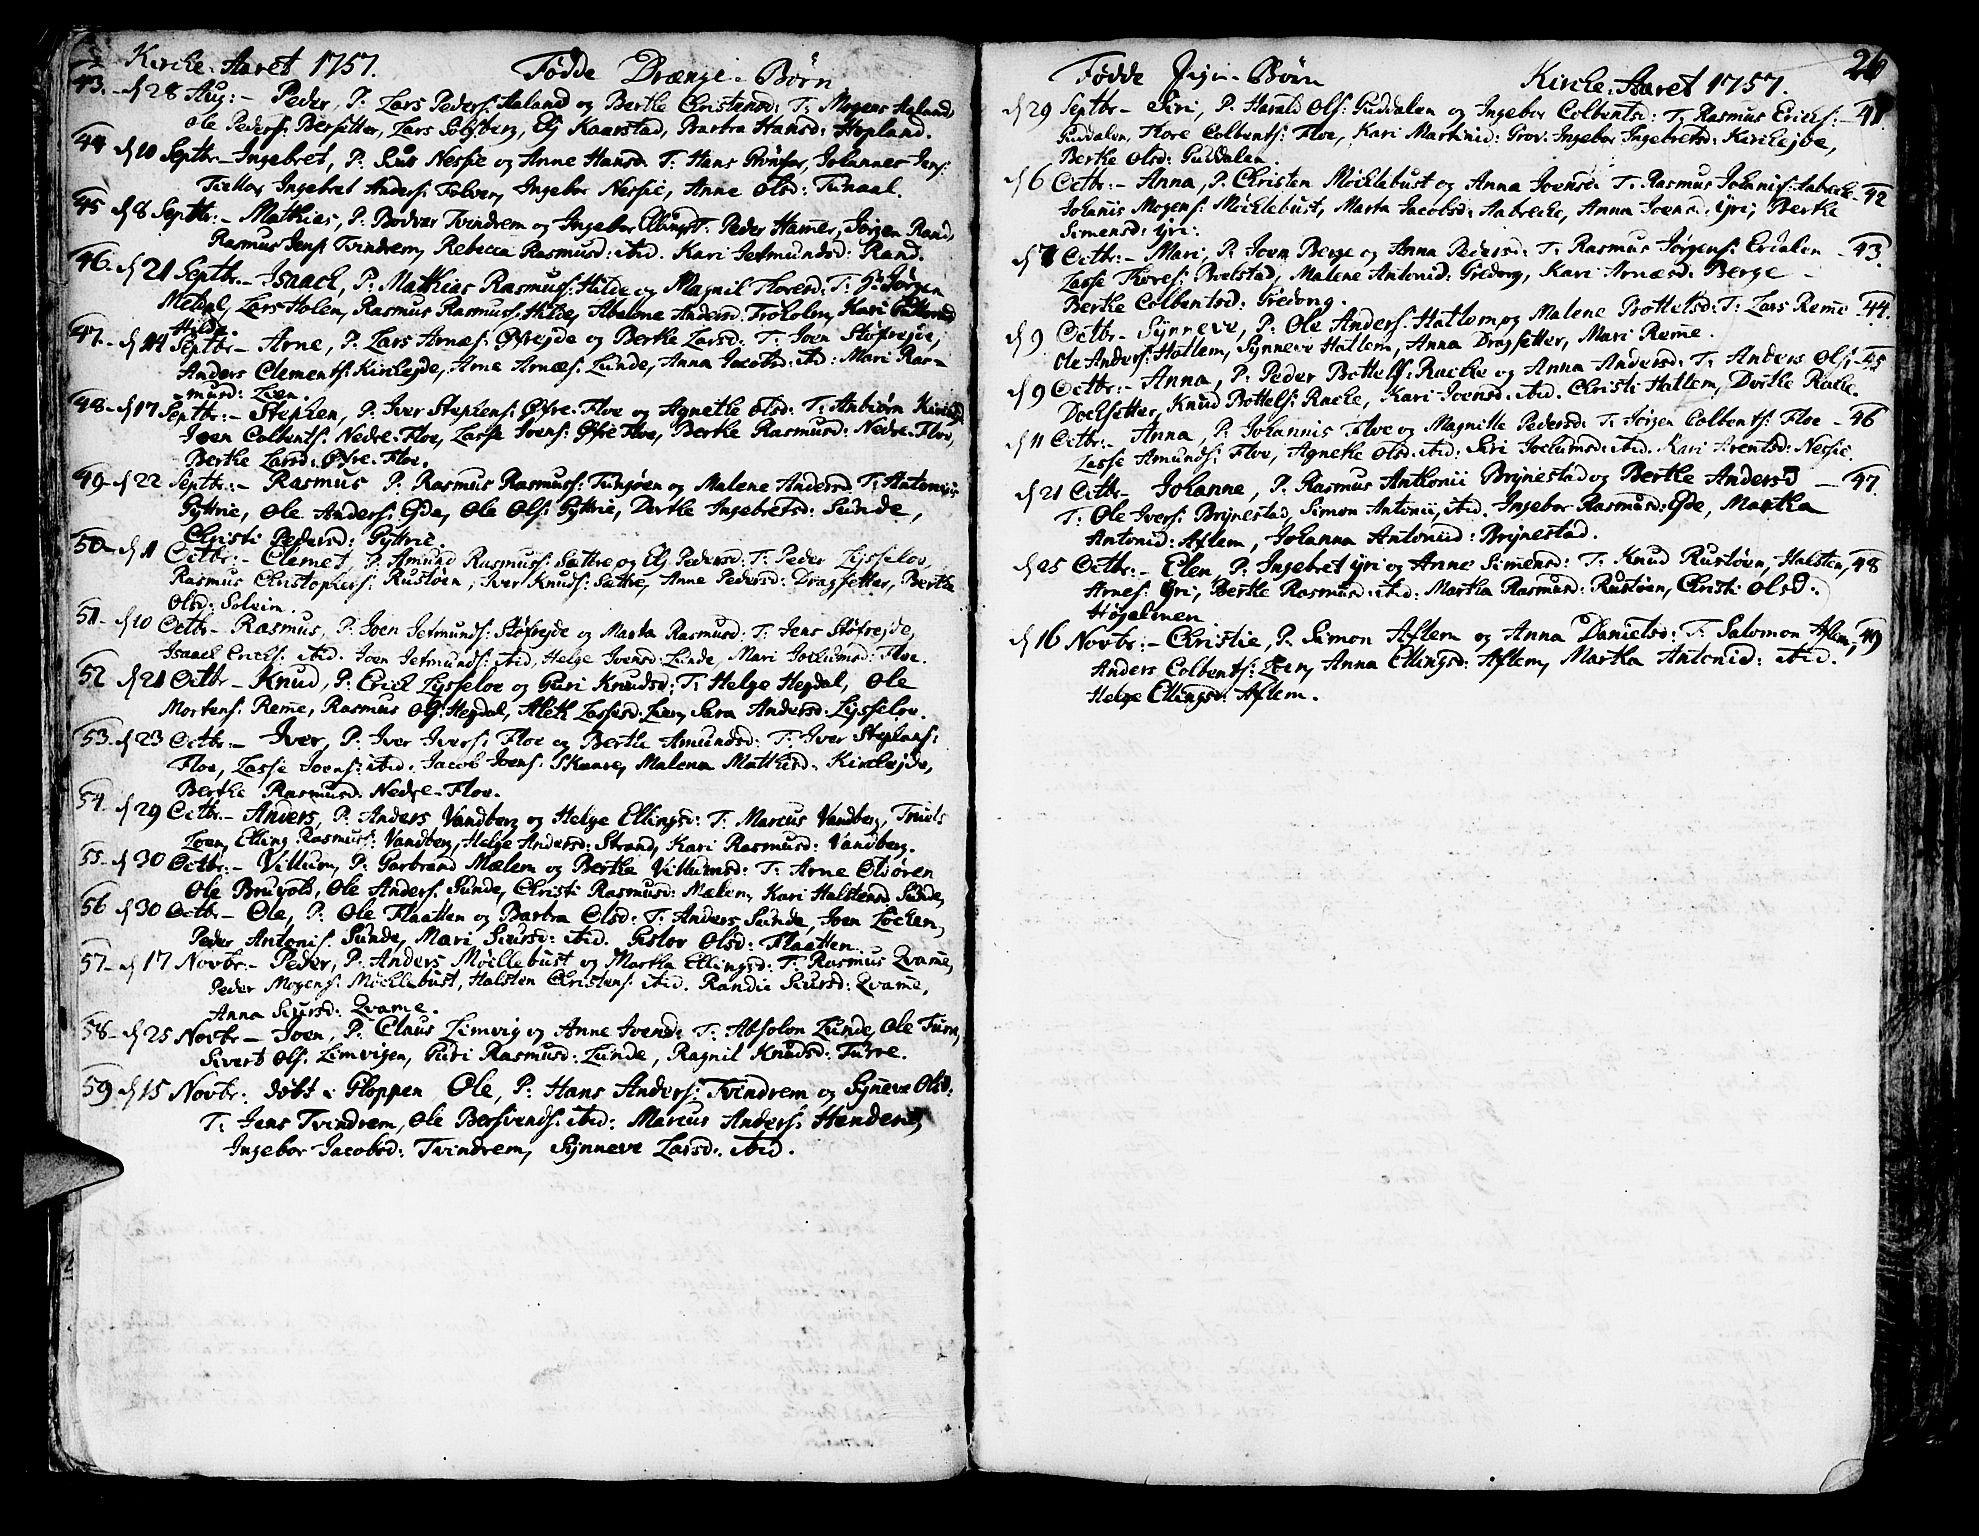 Kirche-Aaret 1757. Fødde Drænge-Børn
43. d 28 Aug: – Peder, P: Lars Peders: Aaland og Berthe Christensd: T: Mogens Aaland,
Ole Peders: Bersetter, Lars Solsberg, Elj Kaarstad, Barbra Hansd: Hopland.
44 d 10 Septbr – Ingebret, P: Nessie og Anne Hansd T: Hans, Johannes Jens:
Ingebret Anders: Tolven, Ingebor Nessie, Anne Olsd: Tunaal.
45 d 8 Septbr: – Mathies, P: Bodvar Tvindrem og Ingebor Ellingsd T: Peder Hamer, Jørgen Rand,
Rasmus Jens: Tvindrem, Rebecca Rasmusd: ibid. Kari Jetmundsd: Rand.
46. d 21 Septbr. – Isaach, P: Mathias Rasmus: Hilde og Magnil Floresd: T: Jørgen
Meldal, Lars Holen, Rasmus Rasmuss: Hilde, Abelone Andersd: Trololen, Kari
Hilde.
47. d 14 Septbr – Arne, P. Lars Arnes: Øfrejde og Berthe Larsd: T: Joen Støfrejde,
Anders Clements: Kirchejde, Arne Arnæs: Lunde, Anna Jacobsd: ibid: Mari Ras-
musd: Loen.
48 – d 17 Septbr: – Stephen, P. Iver Stephens: Øfre-Floe og Agnethe Olsd: T: Anbiørn Kirchejd,
Joen Colbents: Nedre-Floe, Lasse Joens: Øfre Floe, Berthe Rasmusd: Nedre-Floe,
Berthe Larsd: Øfre-Floe.
49 – d 22 Septbr: – Rasmus P. Rasmus Rasmuss: Tungøen og Malene Andersd T: Antonius
Pyttrie, Ole Anders: Eyde, Ole Ols: Pyttrie, Dorthe Ingebretsd: Sunde,
Christi Pedersd: Pyttrie.
50 – d 1 Octbr: – Clemet, P. Amund Rasmuss: Sættre og Elj Pedersd: T: Peder Lysseloe,
Rasmus Christophers: Rustøen, Iver Knuds: Sættre, Anne Pedersd: Dragsetter, Berthe
Olsd: Solvim.
51 – d 10 Octbr – Rasmus, P. Joen Jetmunds: Støfrejde og Marta Rasmusd: T: Jens Støfrejde,
Isaach Erichs: ibid. Joen Jetmunds: ibid, Helge Ivensd: Lunde, Mari Jochumsd: Floe.
52 d 21 Octbr – Knud, P. Erich Lysseloe og Guri Knudsd: T: Helge Hegdal, Ole
Mortens: Reme, Rasmus Ols: Hegdal, Aleth Lassesd: Loen, Sara Andersd: Lysseloe.
53. d 23 Octbr: – Iver, P. Iver Ivers: Floe og Berthe Amundsd: T: Iver Stephans:
Floe, Lasse Joens: ibid. Jacob Joens: Skaare, Malena Mathisd: Kirchejde,
Berthe Rasmusd: Nedre-Floe.
54. d 29 Octbr. – Anders, P: Anders Vandberg og Helge Ellingsd: T: Marcus Vandberg, Truels
Loen, Elling Rasmuss: Vandberg, Helge Andersd: Strand, Kari Rasmusd: Vandberg.
55 – d 30 Octbr: – Villum, P: Garbrand Mælem og Bertha Villumsd: T: Arne Olsøren
Ole Bruvold, Ole Anders: Sunde, Christi Rasmusd: Mælem, Kari Halstensd Sunde,
56 d 30 Octbr – Ole, P: Ole Flaatten og Barbra Olsd: T: Anders Sunde, Joen Lochen,
Peder Antonis: Sunde, Mari Siursd: ibid. Gislov Olsd: Flaatten.
57 – d 17 Novbr: – Peder, P: Anders Møcklebust og Martha Ellingsd: T: Rasmus Qvame,
Peder Mogens: Møcklebust, Halsten Christens: ibid. Randie Siursd: Qvame,
Anna Siursd: Qvame.
58 – d 25 Novbr – Joen, P: Claus Limvig og Anne Ivensd: T: Absolon Lunde, Ole Furre,
Sivert Ols: Limvigen, Guri Rasmusd: Lunde, Ragnil Knudsd: Furre.
59 d 15 Novbr: døbt i Gloppen Ole, P: Hans Anders: Tvindrem og Synneve Olsd:
T: Jens Tvindrem, Ole Bersvends: ibid: Marcus Anders: Henden,
Ingebor Jacobsd: Tvindrem, Synneve Larsd: ibid.
Fødde Pige-Børn Kirche-Aaret 1757. 26
d 29 Septbr – Siri, P. Harald Ols: Guddalen og Ingebor Colbentsd: T. Rasmus Erichs: – 41
Guddalen, Flore Colbents: Floe, Kari Martinid: Grov. Ingebor Ingebretsd: Kirchejde,
Berthe Olsd: Guddalen.
d 6 Octbr: – Anna, P. Christen Møcklebust og Anna Joensd: T. Rasmus Johanis: Aabreche – 42
Johanis Mogens: Møcklebust, Marta Jacobsd: Aabreche, Anna Joensd: Yri, Berthe
Simensd: Yri:
d 7 Octbr: – Mari, P: Joen Berge og Anna Pedersd: T: Rasmus Jørgens: Erdalen – 43
Lasse Thores: Boelstad, Malene Antonid: Gredorg, Kari Arnæsd: Berge –
Berthe Colbentsd: Gredorg.
d 9 Octbr – Synneve, P: Ole Anders: Hatlem og Malene Bottelsd: T: Lars Reme 44
Ole Anders: Hatlem, Synneve Hatlem, Anna Dragsetter, Mari Reme.
d 9 Octbr: – Anna, P: Peder Bottels: Rache og Anna Andersd: T: Anders Ols: 45
Dochsetter, Knud Bottels: Rache, Kari Joensd: ibid. Christi Hatlem, Dorthe Rache.
d 11 Octbr: – Anna, P: Johannis Floe og Magnille Pedersd: T: Jørgen Colbents: Floe – 46
Lasse Amunds: Floe, Agnethe Olsd: ibid: Siri Jochumsd: ibid. Kari Arentsd: Nessie.
d 21 Octbr – Johanne, P: Rasmus Anthonii Brynestad og Berthe Andersd – 47.
T: Ole Ivers: Brynestad, Simon Antonii, ibid, Ingebor Rasmusd: Eyde, Martha
Antonid: Aflem, Johanna Antoniid: Brynestad.
d 25 Octbr: – Elen, P: Ingebret Yri og Anne Simensd: T: Knud Rustøen, Halsten, 48
Arnes: Yri, Berthe Rasmusd: ibid: Martha Rasmusd: Rustøen, Christi Olsd.
Høgalmen
d 16 Novbr: – Christie, P. Simon Aflem og Anna Danielsd: T: Salomon Aflem, 49
Anders Colbents: Loen, Anna Ellingsd: Aflem, Martha Antonid: ibid.
Helge Ellingsd: Aflem.